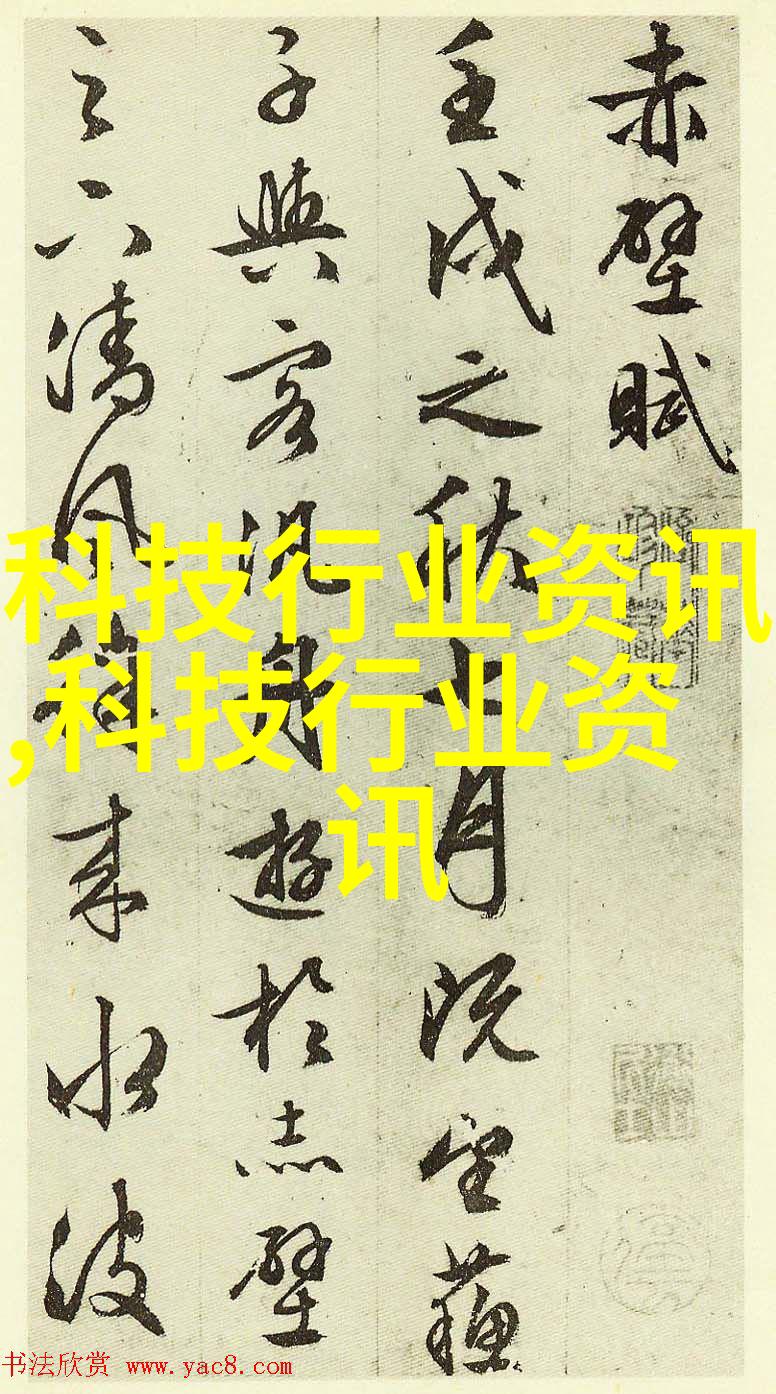 赤壁賦
壬戌之秋七月既望蘇
子與客泛舟遊於赤壁
之下清風徐來水波
科技行业资讯
,科技行业资
讯
书法欣赏 www.yac8.com